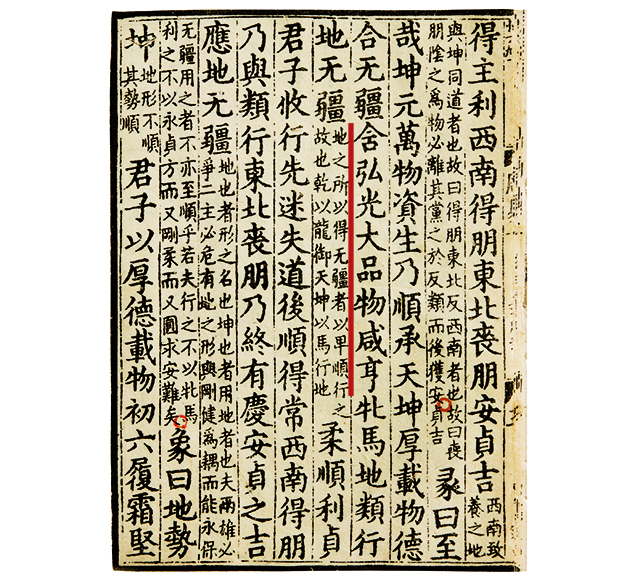 得主利西南得朋東北喪朋安貞吉西南致養之地
與坤同道者也故曰得朋東北反西南者也故曰喪朋陰之爲物必離其黨之於反類而後獲安貞吉彖曰至
哉坤元萬物資生乃順承天坤厚載物德
合无疆含弘光大品物咸亨牝馬地類行
地无疆地之所以得无疆者以卑順行之故也乾以龍御天坤以馬行地柔順利貞
君子攸行先迷失道後順得常西南得朋
乃與類行東北喪朋乃終有慶安貞之吉
應地无疆地也者形之名也坤也者用地者也夫兩雄必爭二主必危有地之形與剛健爲耦而能永保
无疆用之者不亦至順乎若夫行之不以牝馬利之不以永貞方而又剛柔而又圓求安難矣象曰地勢
坤地形不順其勢順君子以厚德載物初六履霜堅